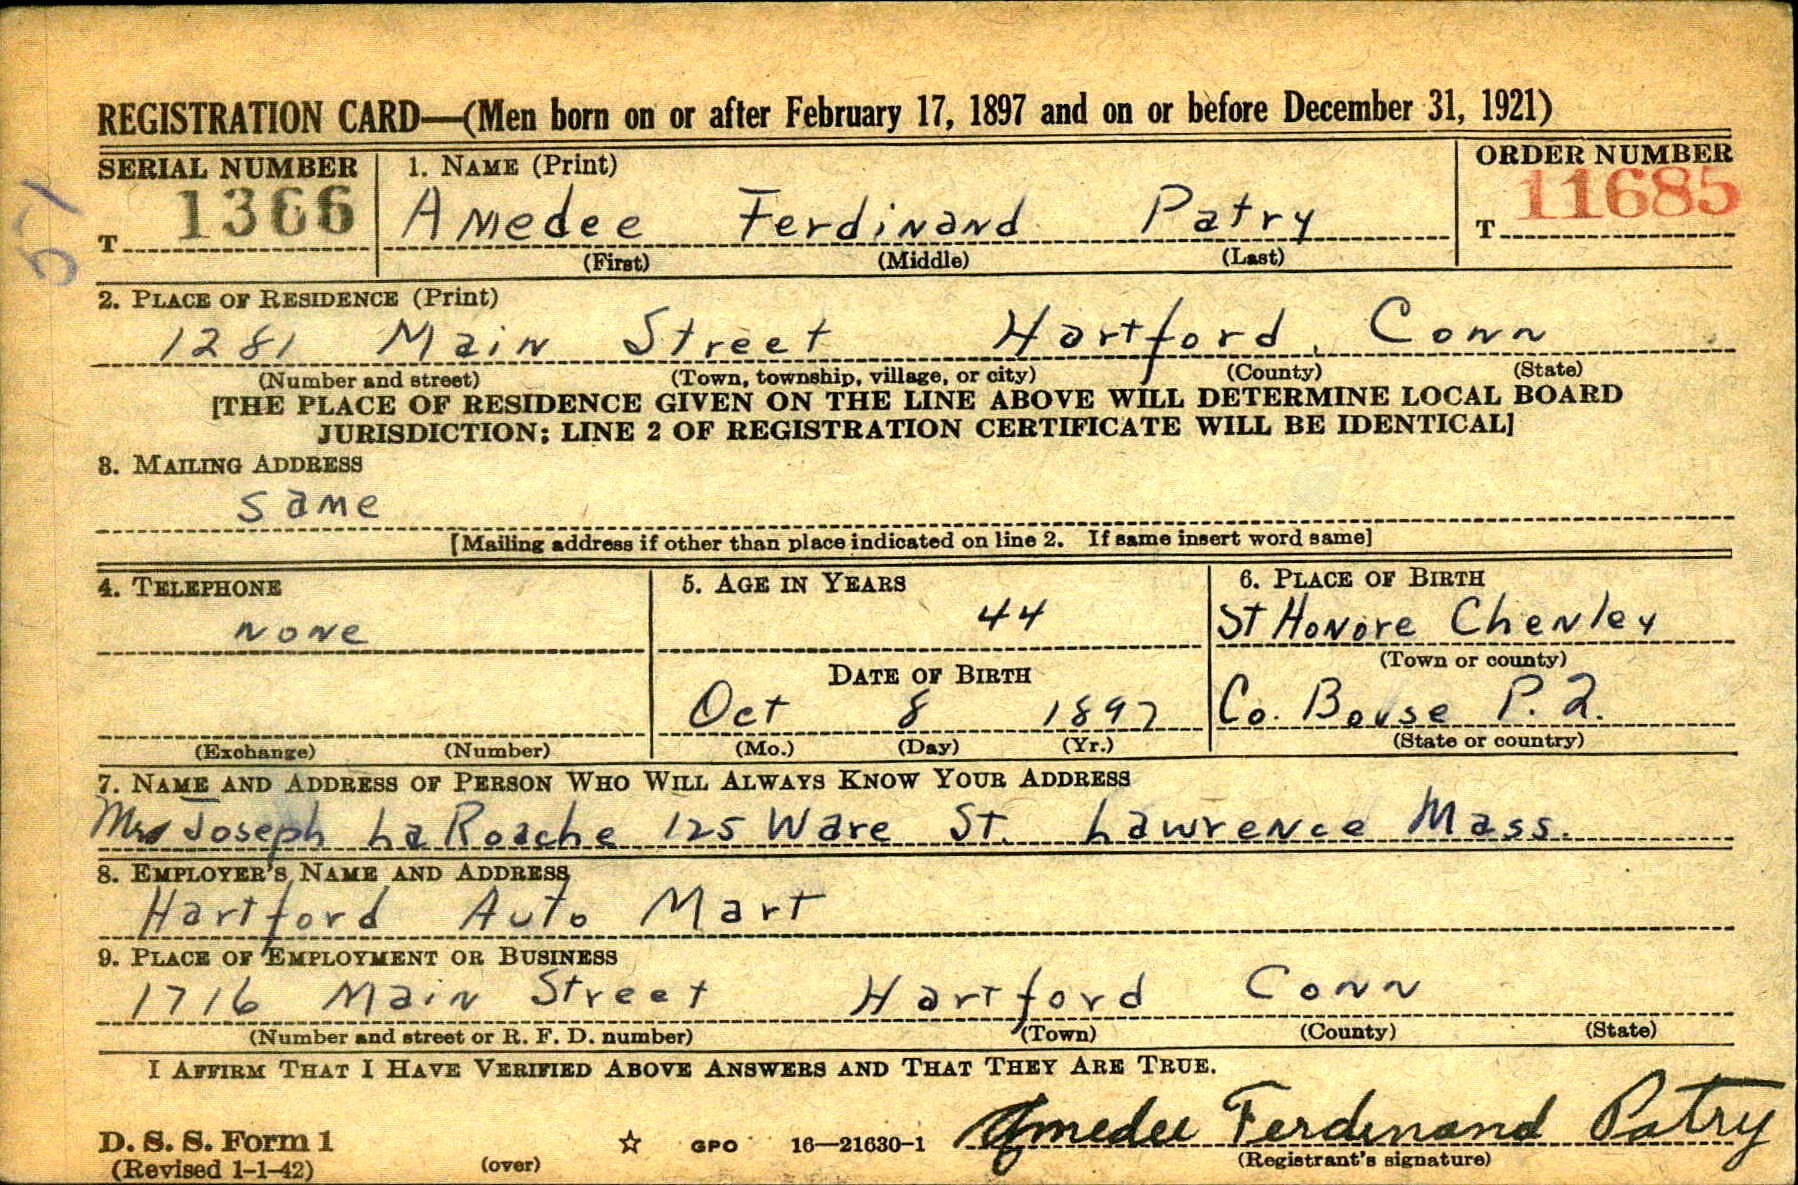 REGISTRATION CARD—(Men born on or after February 17, 1897 and on or before December 31, 1921)
SERIAL NUMBER 1. NAME (Print) ORDER NUMBER
T 1366 Amedee Ferdinand Patry T 11685
(First) (Middle) (Last)
2. PLACE OF RESIDENCE (Print)
1281 Main Street Hartford, Conn
(Number and street) (Town, township, village, or city) (County) (State)
[THE PLACE OF RESIDENCE GIVEN ON THE LINE ABOVE WILL DETERMINE LOCAL BOARD
JURISDICTION; LINE 2 OF REGISTRATION CERTIFICATE WILL BE IDENTICAL]
3. MAILING ADDRESS
same
[Mailing address if other than place indicated on line 2. If same insert word same]
4. TELEPHONE 5. AGE IN YEARS 6. PLACE OF BIRTH
none 44 St Honore Chenley
(Town or county)
DATE OF BIRTH
Oct 8 1897 Co. Bouse P.Q.
(Exchange) (Number) (Mo.) (Day) (Yr.) (State or country)
7. NAME AND ADDRESS OF PERSON WHO WILL ALWAYS KNOW YOUR ADDRESS
Mrs Joseph LaRoache 125 Ware St. Lawrence Mass.
8. EMPLOYER'S NAME AND ADDRESS
Hartford Auto Mart
9. PLACE OF EMPLOYMENT OR BUSINESS
1716 Main Street Hartford Conn
(Number and street or R. F. D. number) (Town) (County) (State)
I AFFIRM THAT I HAVE VERIFIED ABOVE ANSWERS AND THAT THEY ARE TRUE.
D. S. S. Form 1 ☆ GPO 16—21630-1 Amedee Ferdinand Patry
(Revised 1-1-42) (over) (Registrant's signature)